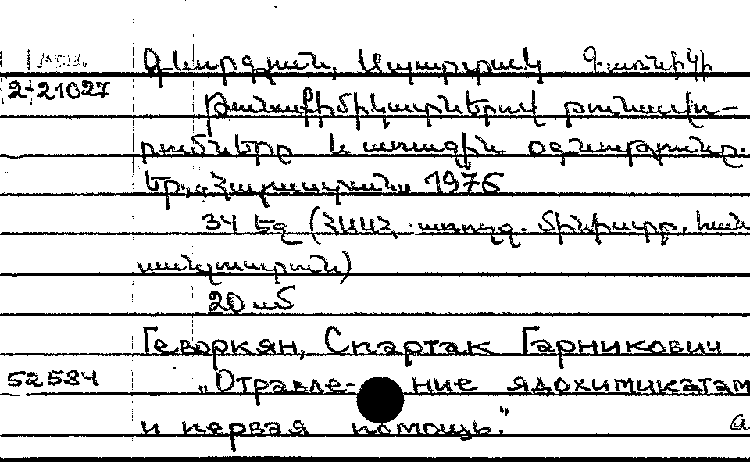 Գևորգյան, Սպարտակ Գառնիկի
2-21027
Թունաքիմիկատներով թունավո-
րումները և առաջին օգնությունը.
Եր., Հայաստան, 1976
34 էջ (ՀՍՍՀ առողջ. մինիստր. հան
20 սմ
Геворкян, Спартак Гарникович
52584 „Отравле- ние ядохимикатам
и первая помощь."